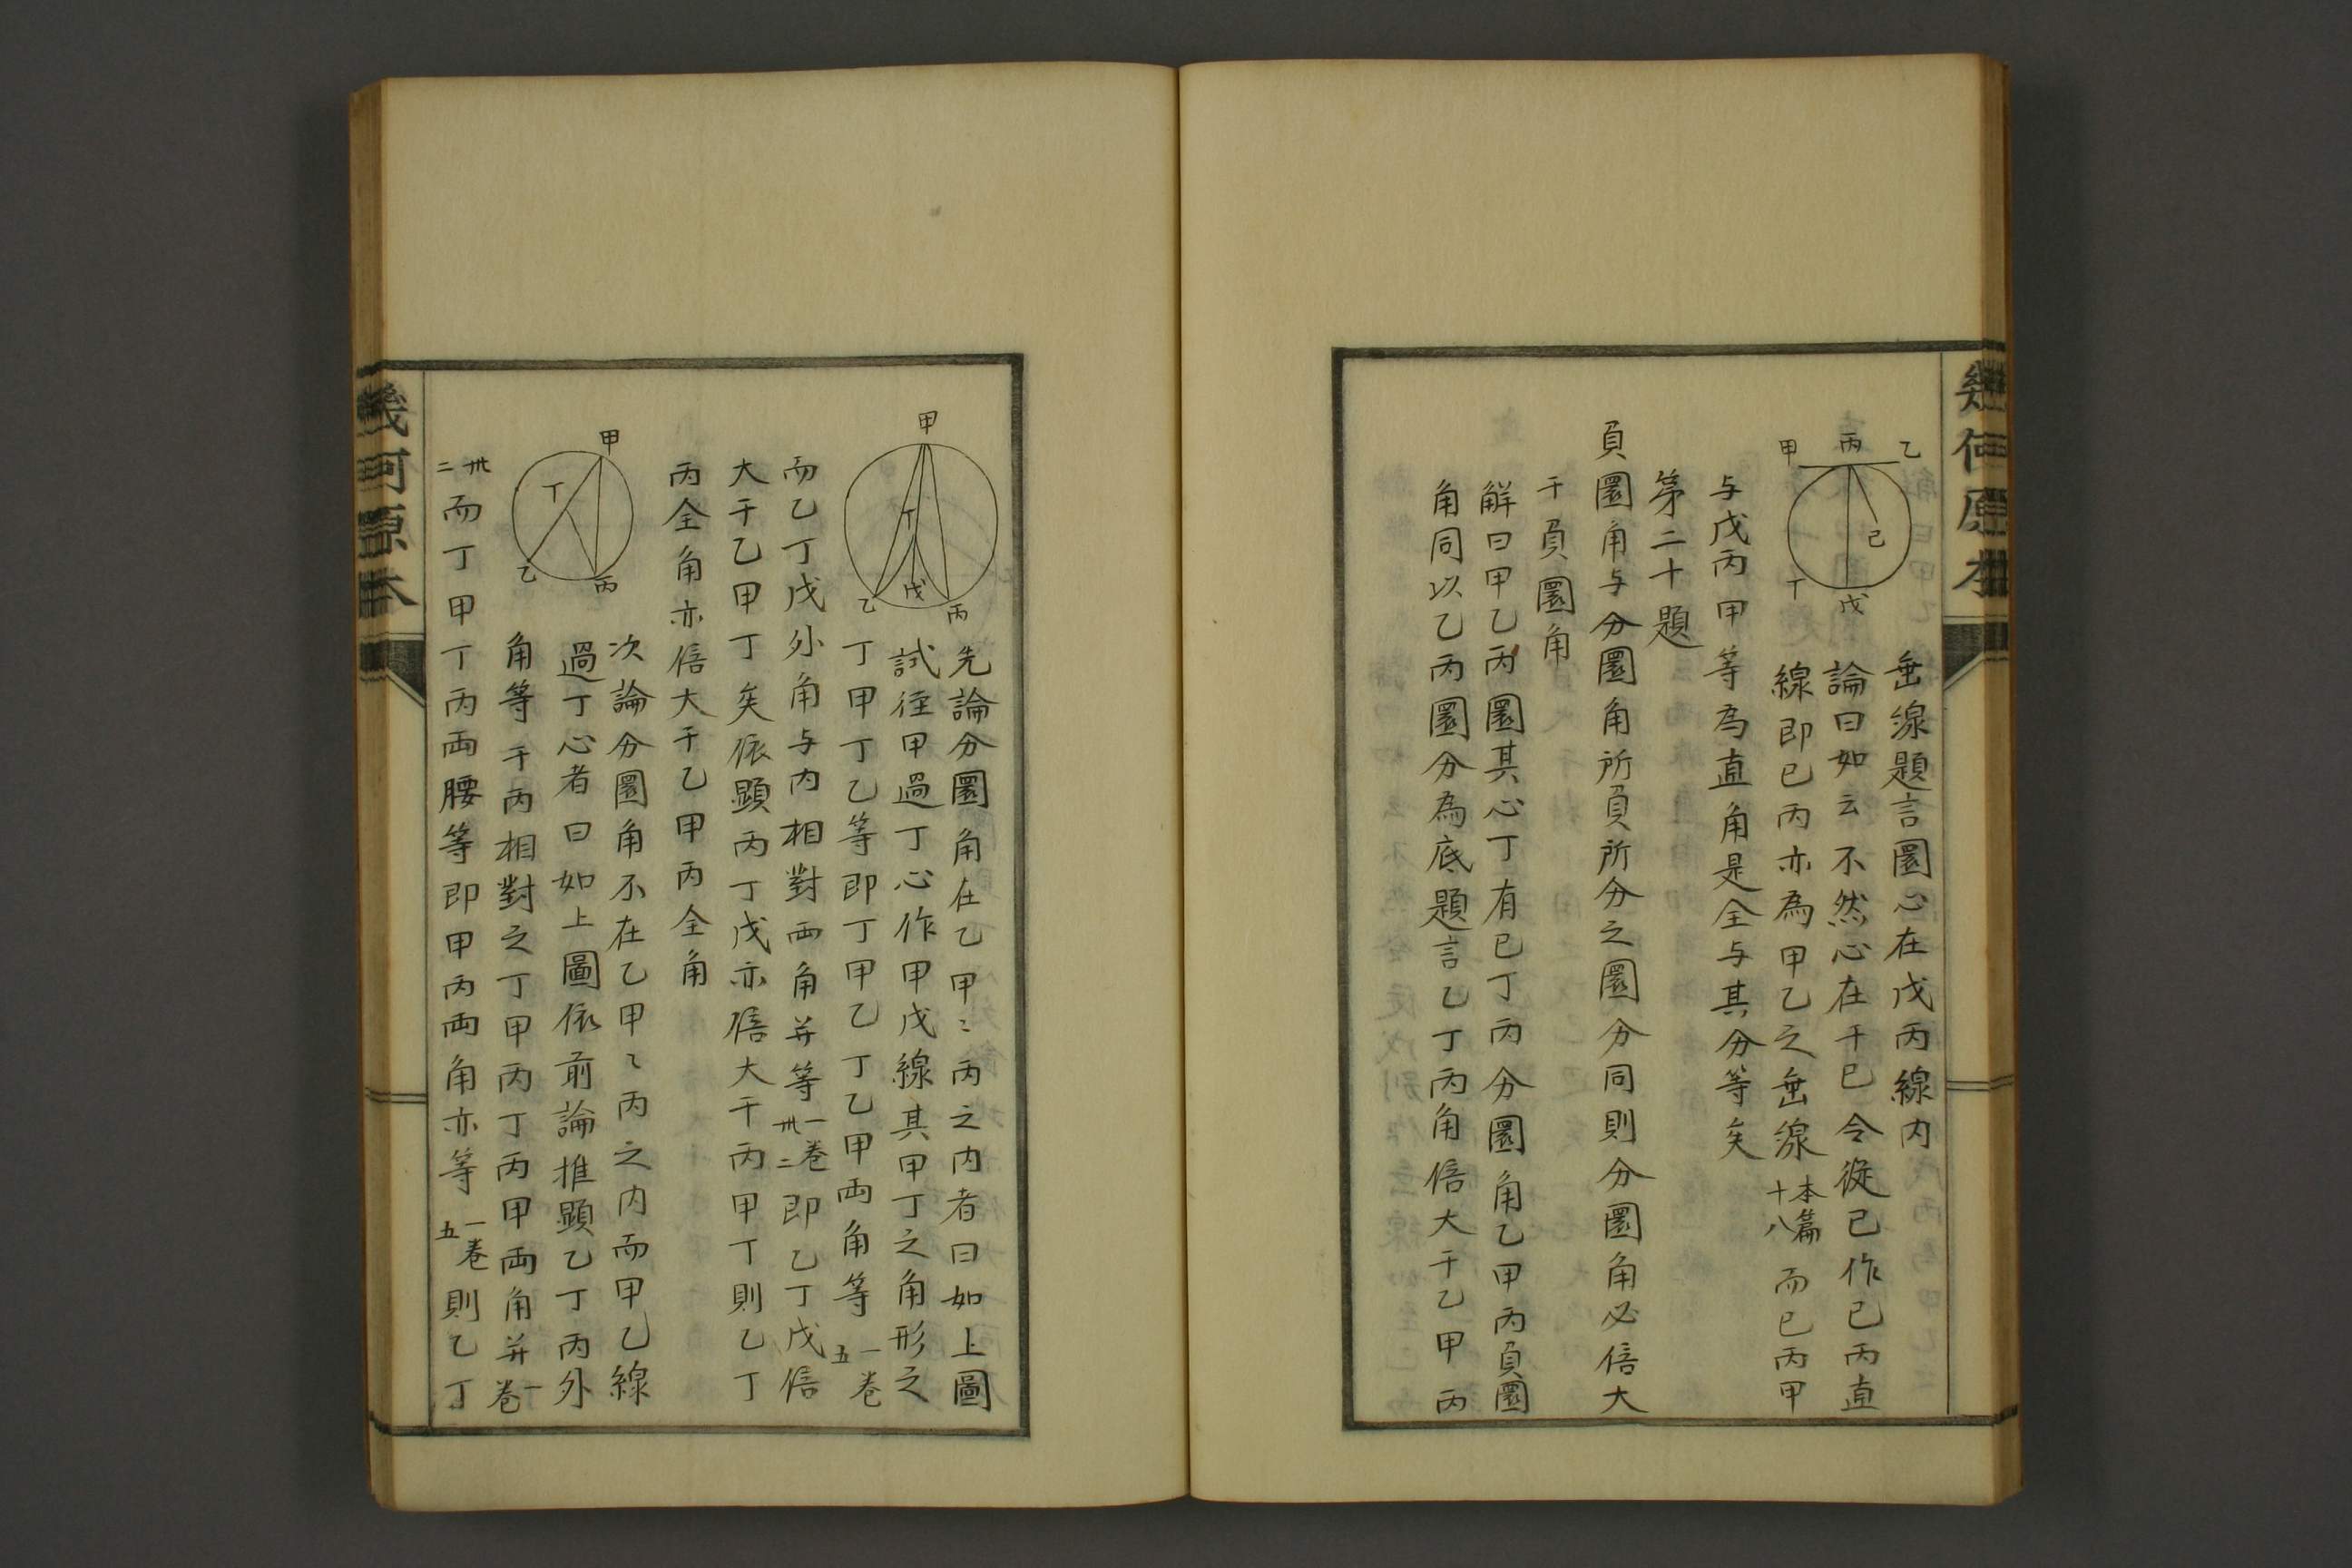 幾何原本
甲 丙 乙
己
丁 戊
垂線題言圜心在戊丙線内
論曰如云不然心在于己令從己作己丙直
線即己丙亦為甲乙之垂線本篇十八而己丙甲
与戊丙甲等為直角是全与其分等矣
第二十題
負圜角与分圜角所負所分之圜分同則分圜角必倍大
于負圜角
解曰甲乙丙圜其心丁有乙丁丙分圜角乙甲丙負圜
角同以乙丙圜分為底題言乙丁丙角倍大于乙甲丙
甲
丁
乙 戊 丙
先論分圜角在乙甲〻丙之内者曰如上圖
試徃甲過丁心作甲戊線其甲丁之角形之
丁甲丁乙等即丁甲乙丁乙甲両角等一卷五
而乙丁戊外角与内相對両角并等一卷卅二即乙丁戊倍
大于乙甲丁矣依顯丙丁戊亦倍大于丙甲丁則乙丁
丙全角亦倍大于乙甲丙全角
甲
丁
乙 丙
次論分圜角不在乙甲〻丙之内而甲乙線
過丁心者曰如上圖依前論推顯乙丁丙外
角等于丙相對之丁甲丙丁丙甲両角并一卷
卅二而丁甲丁丙両腰等即甲丙両角亦等一卷五則乙丁
幾何原本